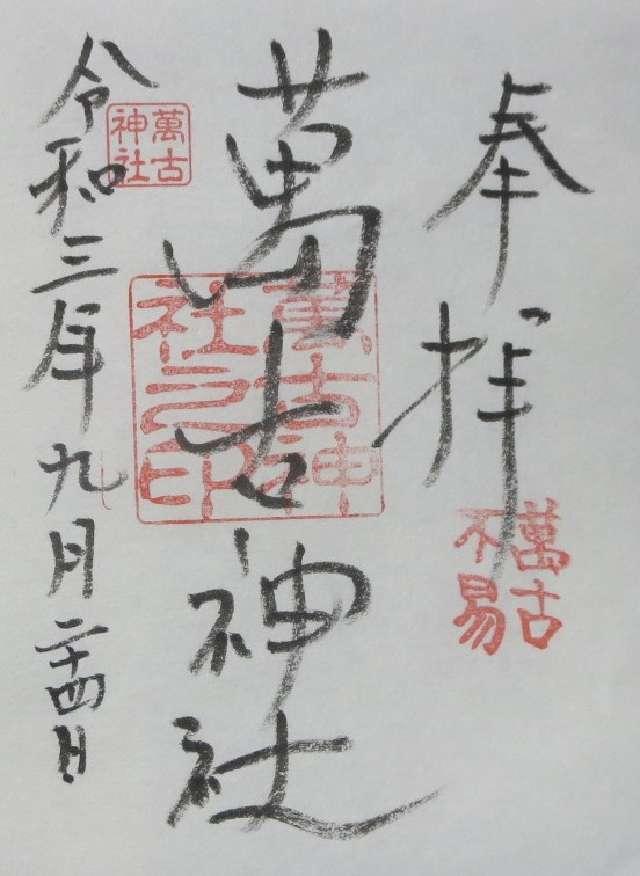 奉拝
萬古不易
萬古神社
萬古神社之印
令和三年九月二十四日
萬古神社